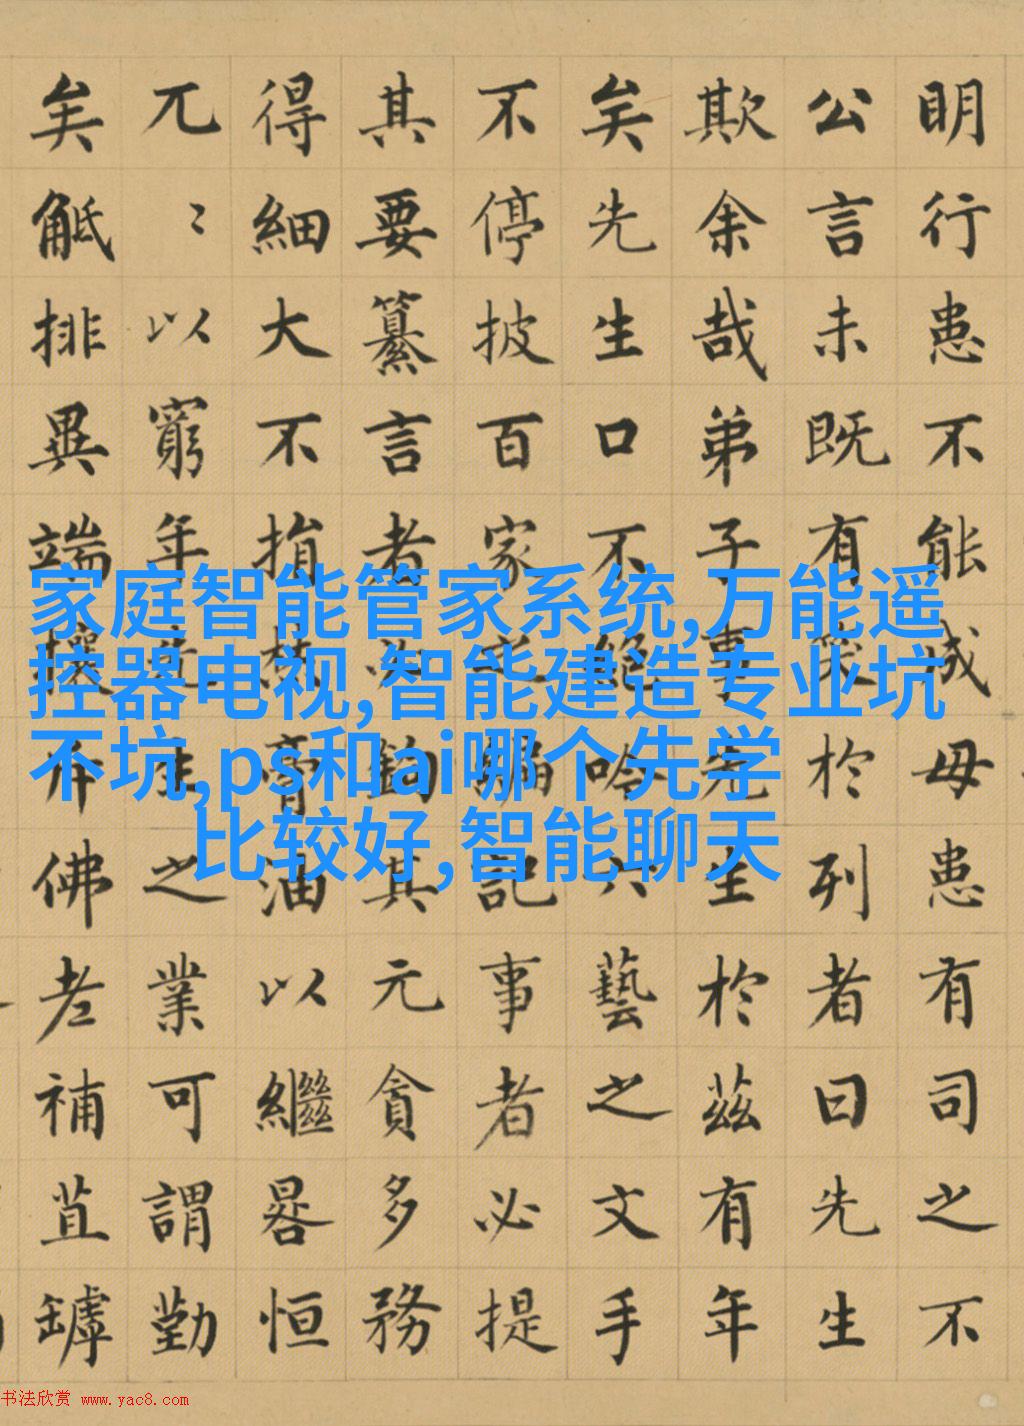 明行患不能成毋患有司之不
公言未既有笑於列者曰先生
欺余哉弟子事先生於茲有年
矣先生口不絕吟六藝之文手
不停披百家之編記事者必提
其要纂言者必鈎其元貪多務
得細大不捐焚膏油以繼晷恒
兀〻以窮年先生之業可謂勤
矣觝排異端攘斥佛老補苴罅
家庭智能管家系统,万能遥
控器电视,智能建造专业坑
不坑,ps和ai哪个先学
比较好,智能聊天
书法欣赏 www.yac8.com